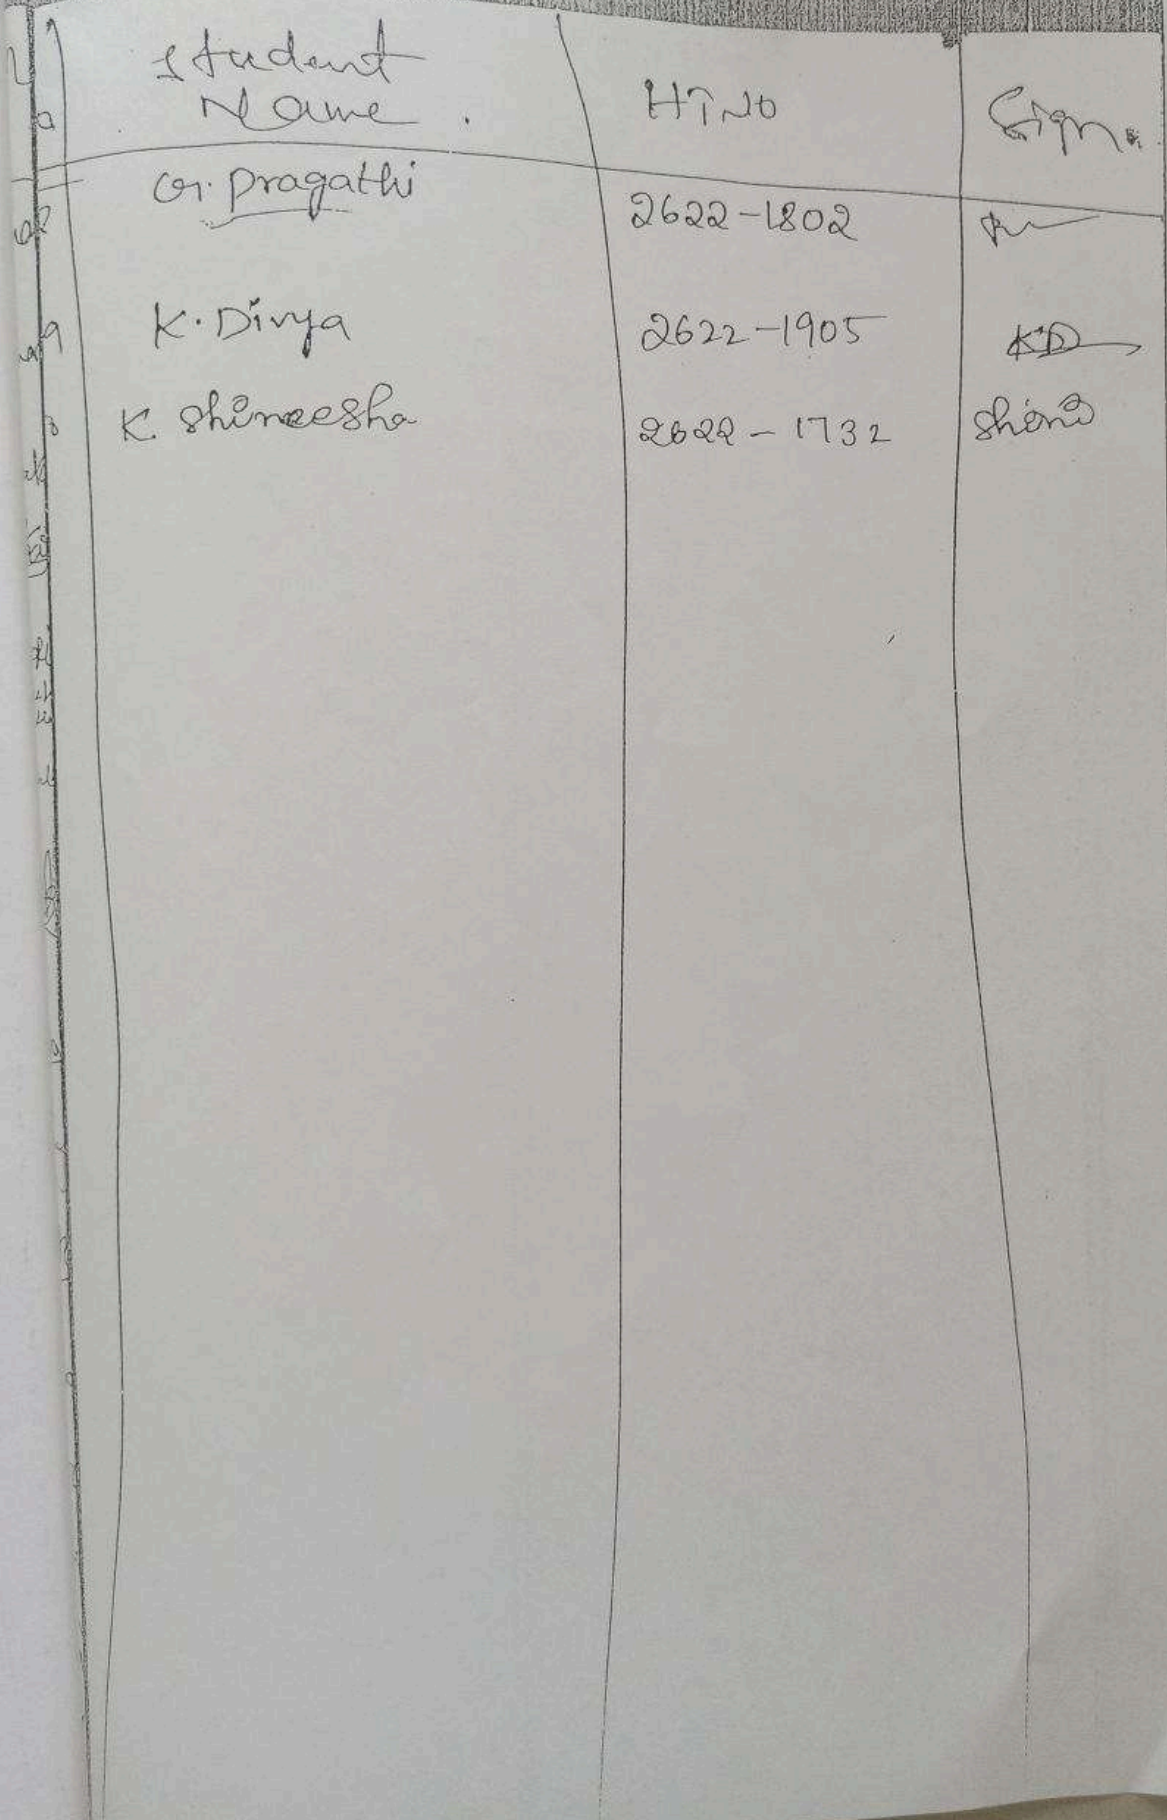 Student
Name.
HTNO
Sign.
G. Pragathi
2622-1802
K. Divya
2622-1905
KD
K. Shireesha
2622-1732
Shiri